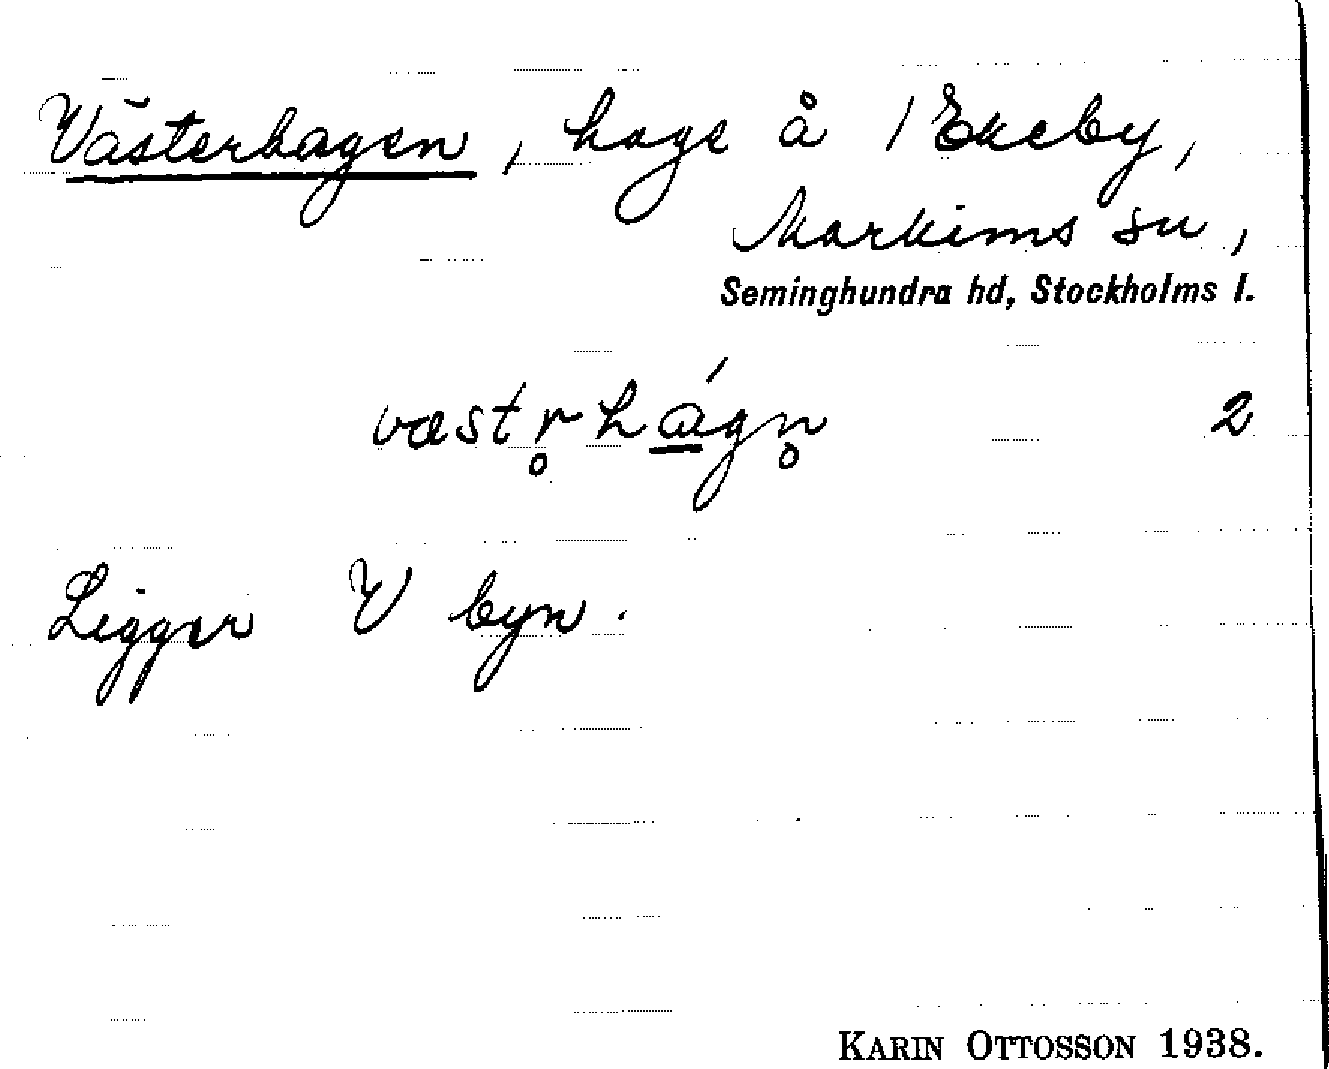 Västerhagen, hage å /Ekeby,
Markims sn,
Seminghundra hd, Stockholms l.
væstr̥hágn̥ 2
Ligger V byn.
KARIN OTTOSSON 1938.